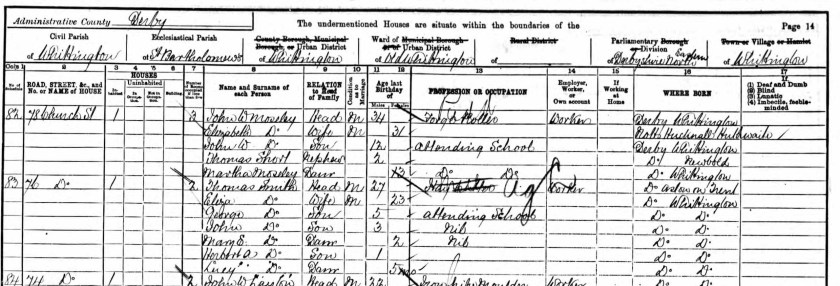 Administrative County Derby The undermentioned Houses are situate within the boundaries of the Page 14
Civil Parish Ecclesiastical Parish County Borough, Municipal Borough or Urban District Ward of Municipal Borough or of Urban District Rural District Parliamentary Borough or Division Town or Village or Hamlet
of Whittington of St Bartholomews of Whittington of Old Whittington of Derbyshire North Eastern of Whittington
Cols 1 2 3 4 5 6 7 8 9 10 11 12 13 14 15 16 17
ROAD, STREET, &c., and No. or NAME of HOUSE HOUSES Name and Surname of each Person RELATION to Head of Family Condition as to Marriage Age last Birthday of PROFESSION OR OCCUPATION Employer, Worker, or Own account If Working at Home WHERE BORN
Inhabited Uninhabited In Occupation Not in Occupation Building Males Females
(1) Deaf and Dumb
(2) Blind
(3) Lunatic
(4) Imbecile, feeble-minded
82 78 Church St 1 John W Moseley Head M 34 Forge Roller Worker Derby Whittington
Elizabeth Do Wife M 31 Notts Hucknall Huthwaite
John W Do Son 12 attending School Derby Whittington
Thomas Short Nephew 2 Do Newbold
Martha Moseley Daur 13 Do Do Do Whittington
83 76 Do 1 2 Thomas Smith Head M 27 Worker Do Trent
Eliza Do Wife M 23 Do Whittington
George Do Son 5 attending School Do Do
John Do Son 3 Nil Do Do
Mary E. Do Daur 2 Nil Do Do
Herbert A Do Son 1 Do Do
Lucy Do Daur 5mo Do Do
84 74 Do 1 2 John W Head M 22 Iron Moulder Worker Do Do